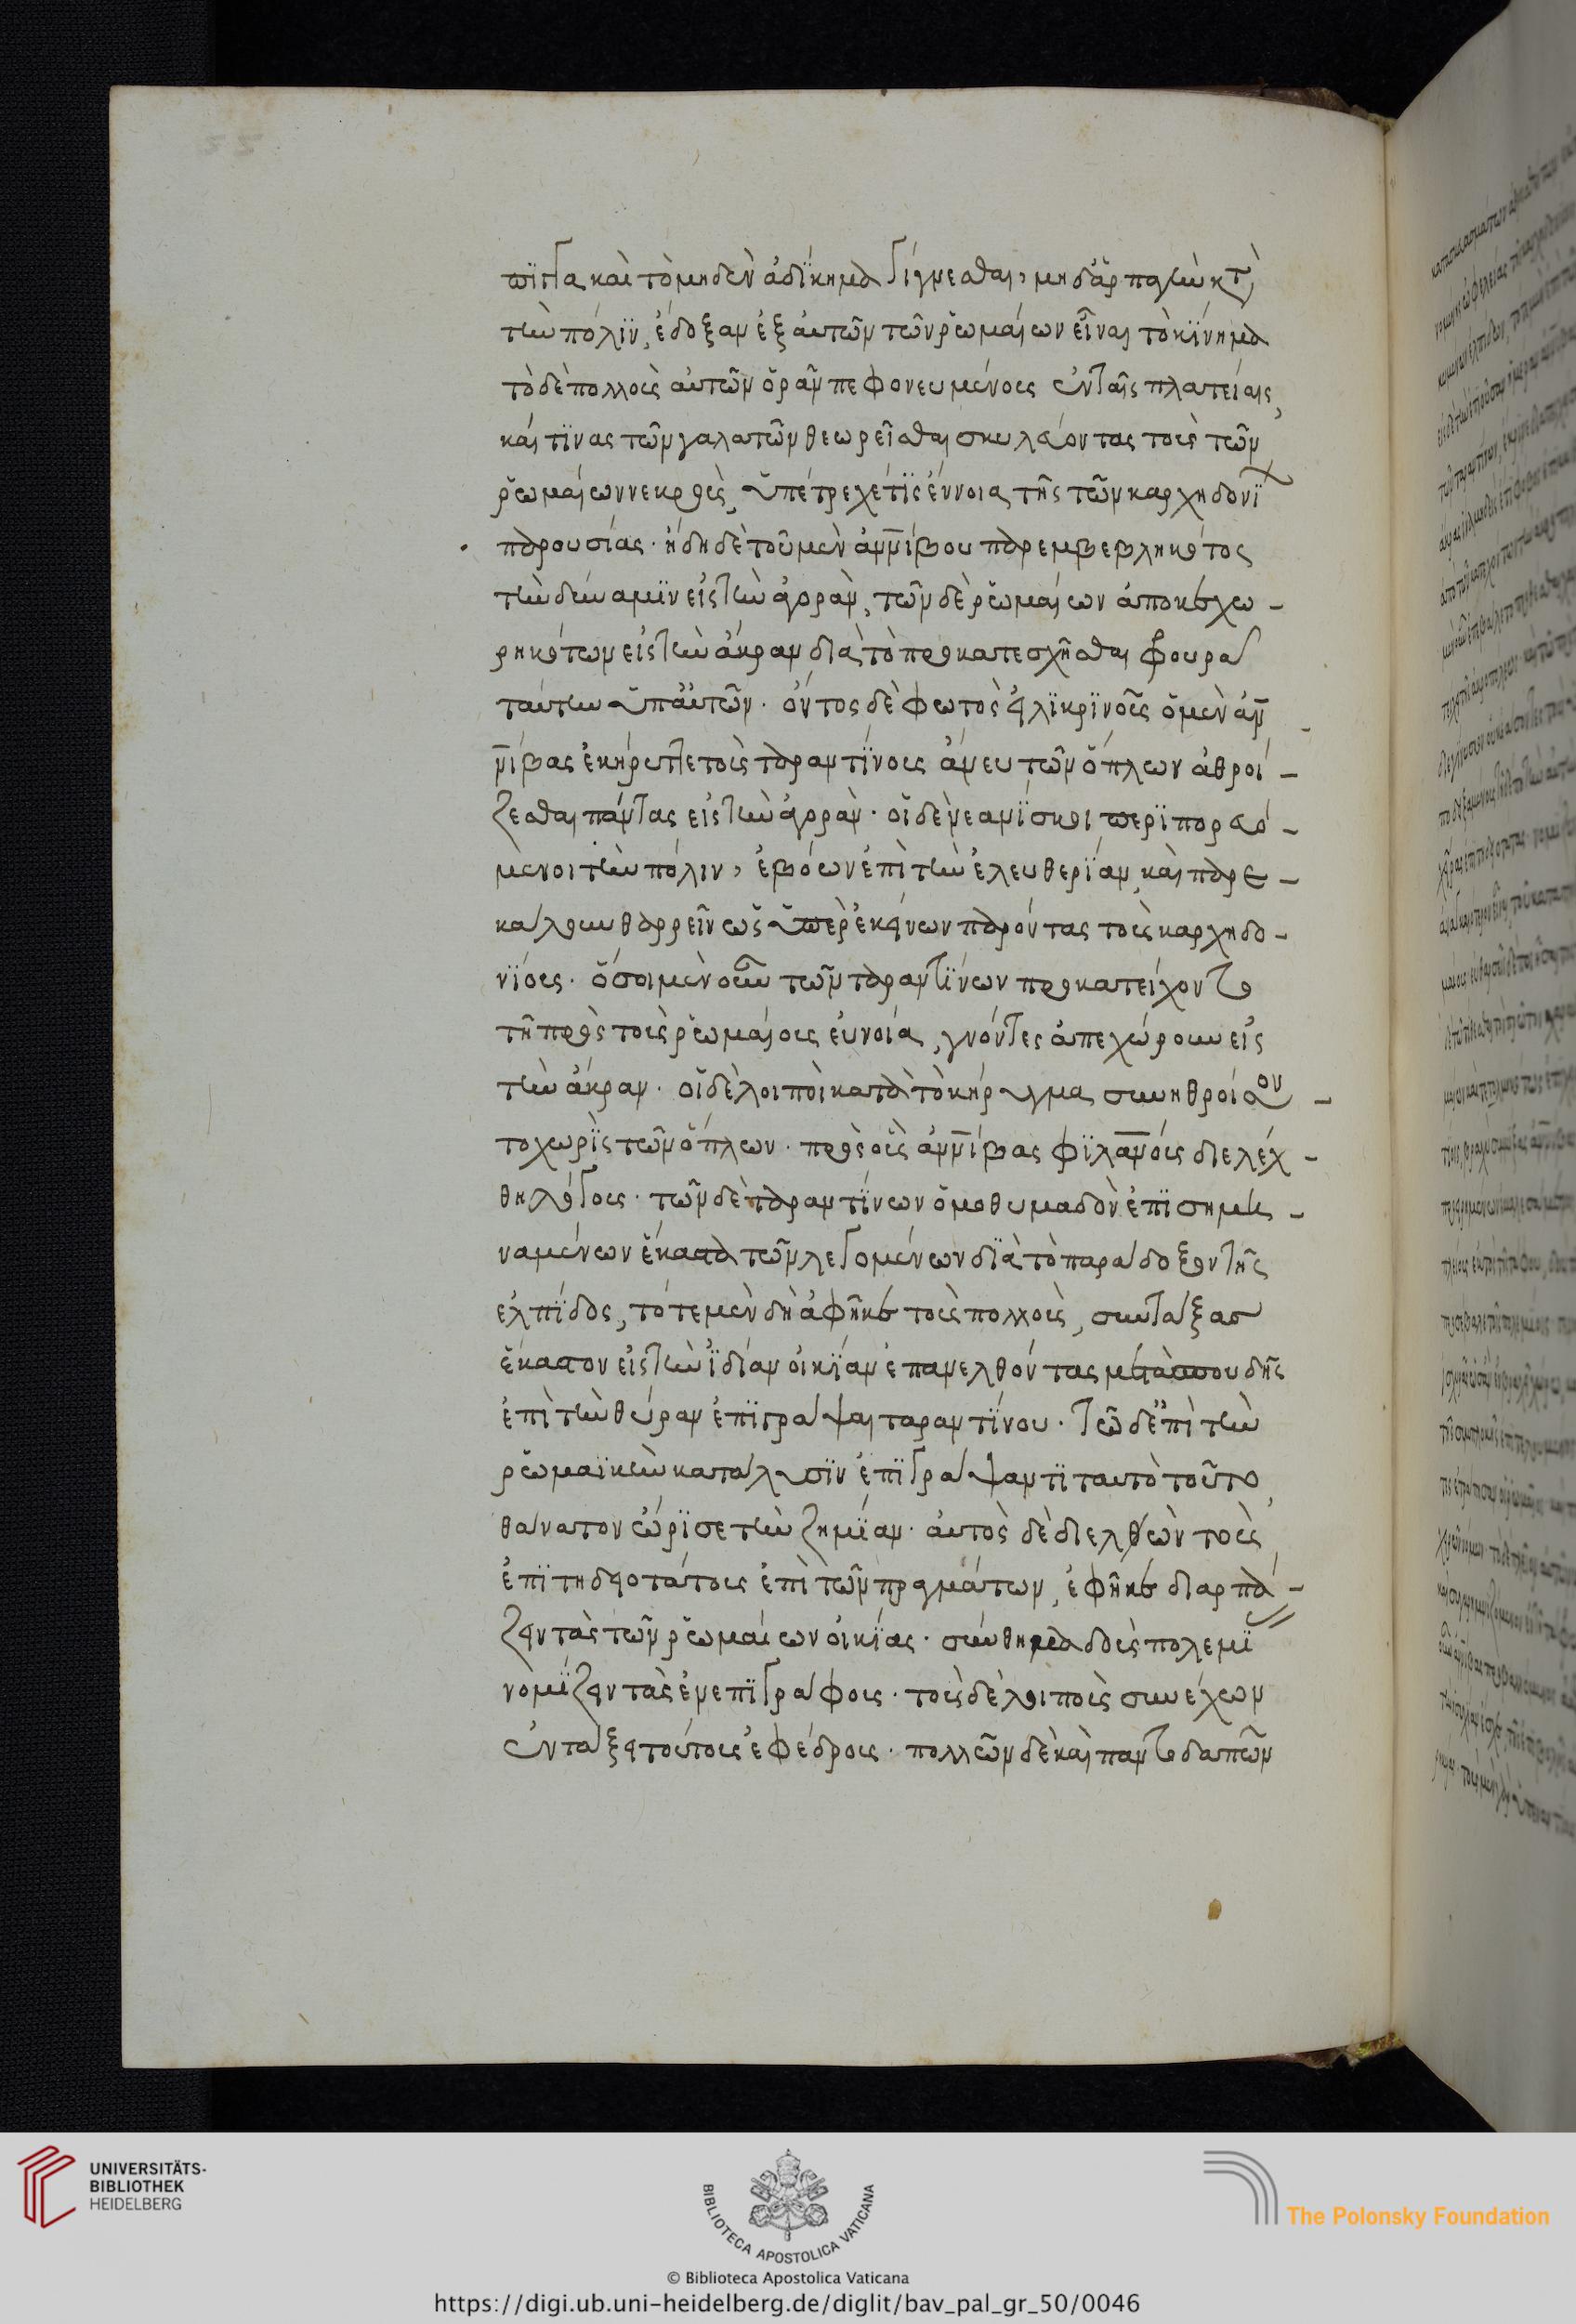 πίπτειν καὶ τὸ μηδὲν ἀδίκημα γίγνεσθαι, μηδ' ἁρπαγὴν κατὰ
τὴν πόλιν, ἔδοξαν ἐξ αὐτῶν τῶν ῥωμαίων εἶναι τὸ κίνημα
τὸ δὲ πολλοὺς αὐτῶν ὁρᾶν πεφονευμένους ἐν ταῖς πλατείαις,
καί τινας τῶν γαλατῶν θεωρεῖσθαι σκυλεύοντας τοὺς τῶν
ῥωμαίων νεκροὺς, ὑπέτρεχέ τις ἔννοια τῆς τῶν καρχηδονίων
παρουσίας· ἤδη δὲ τοῦ μὲν ἀννίβου παρεμβεβληκότος
τὴν δύναμιν εἰς τὴν ἀγορὰν, τῶν δὲ ῥωμαίων ἀποκεχω-
ρηκότων εἰς τὴν ἄκραν διὰ τὸ προκατεσχῆσθαι φρουρᾶ
ταύτην ὑπ' αὐτῶν· ὄντος δὲ φωτὸς εἰλικρινοῦς ὁ μὲν ἀν-
νίβας ἐκήρυττε τοὺς ταραντίνους ἄνευ τῶν ὅπλων ἀθροί-
ζεσθαι πάντας εἰς τὴν ἀγορὰν· οἱ δὲ νεανίσκοι περιπορευό-
μενοι τὴν πόλιν, ἐβόων ἐπὶ τὴν ἐλευθερίαν, καὶ παρε-
κάλουν θαρρεῖν ὡς ὑπὲρ ἐκείνων παρόντας τοὺς καρχηδο-
νίους· ὅσοι μὲν οὖν τῶν ταραντίνων προκατείχοντο
τῆ πρὸς τοὺς ῥωμαίους εὐνοία, γνόντες ἀπεχώρουν εἰς
τὴν ἄκραν· οἱ δὲ λοιποὶ κατὰ τὸ κήρυγμα συνηθροίζον-
το χωρὶς τῶν ὅπλων· πρὸς οὓς ἀννίβας φιλανθρώπους διελέχ-
θη λόγους· τῶν δὲ ταραντίνων ὁμοθυμαδὸν ἐπισημη-
ναμένων ἕκαστα τῶν λεγομένων διὰ τὸ παράδοξον τῆς
ἐλπίδος, τότε μὲν δὴ ἀφῆκε τοὺς πολλοὺς, συντάξας
ἕκαστον εἰς τὴν ἰδίαν οἰκίαν ἐπανελθόντας μετὰ σπουδῆς
ἐπὶ τὴν θύραν ἐπιγράψαι ταραντίνου· τῶ δ' ἐπὶ τὴν
ῥωμαϊκὴν κατάλυσιν ἐπιγράψαντι ταυτὸ τοῦτο,
θάνατον ὥρισε τὴν ζημίαν· αὐτὸς δὲ διελθὼν τοὺς
ἐπιτηδειοτάτους ἐπὶ τῶν πραγμάτων, ἐφῆκε διαρπά-
ζειν τὰς τῶν ῥωμαίων οἰκίας· σύνθημα δοὺς πολεμίας
νομίζειν τὰς ἀνεπιγράφους· τοὺς δὲ λοιποὺς συνέχων
ἐν τάξει τούτοις ἐφέδρους· πολλῶν δὲ καὶ παντοδαπῶν
UNIVERSITÄTS-
BIBLIOTHEK
HEIDELBERG
BIBLIOTECA APOSTOLICA VATICANA
The Polonsky Foundation
© Biblioteca Apostolica Vaticana
https://digi.ub.uni-heidelberg.de/diglit/bav_pal_gr_50/0046